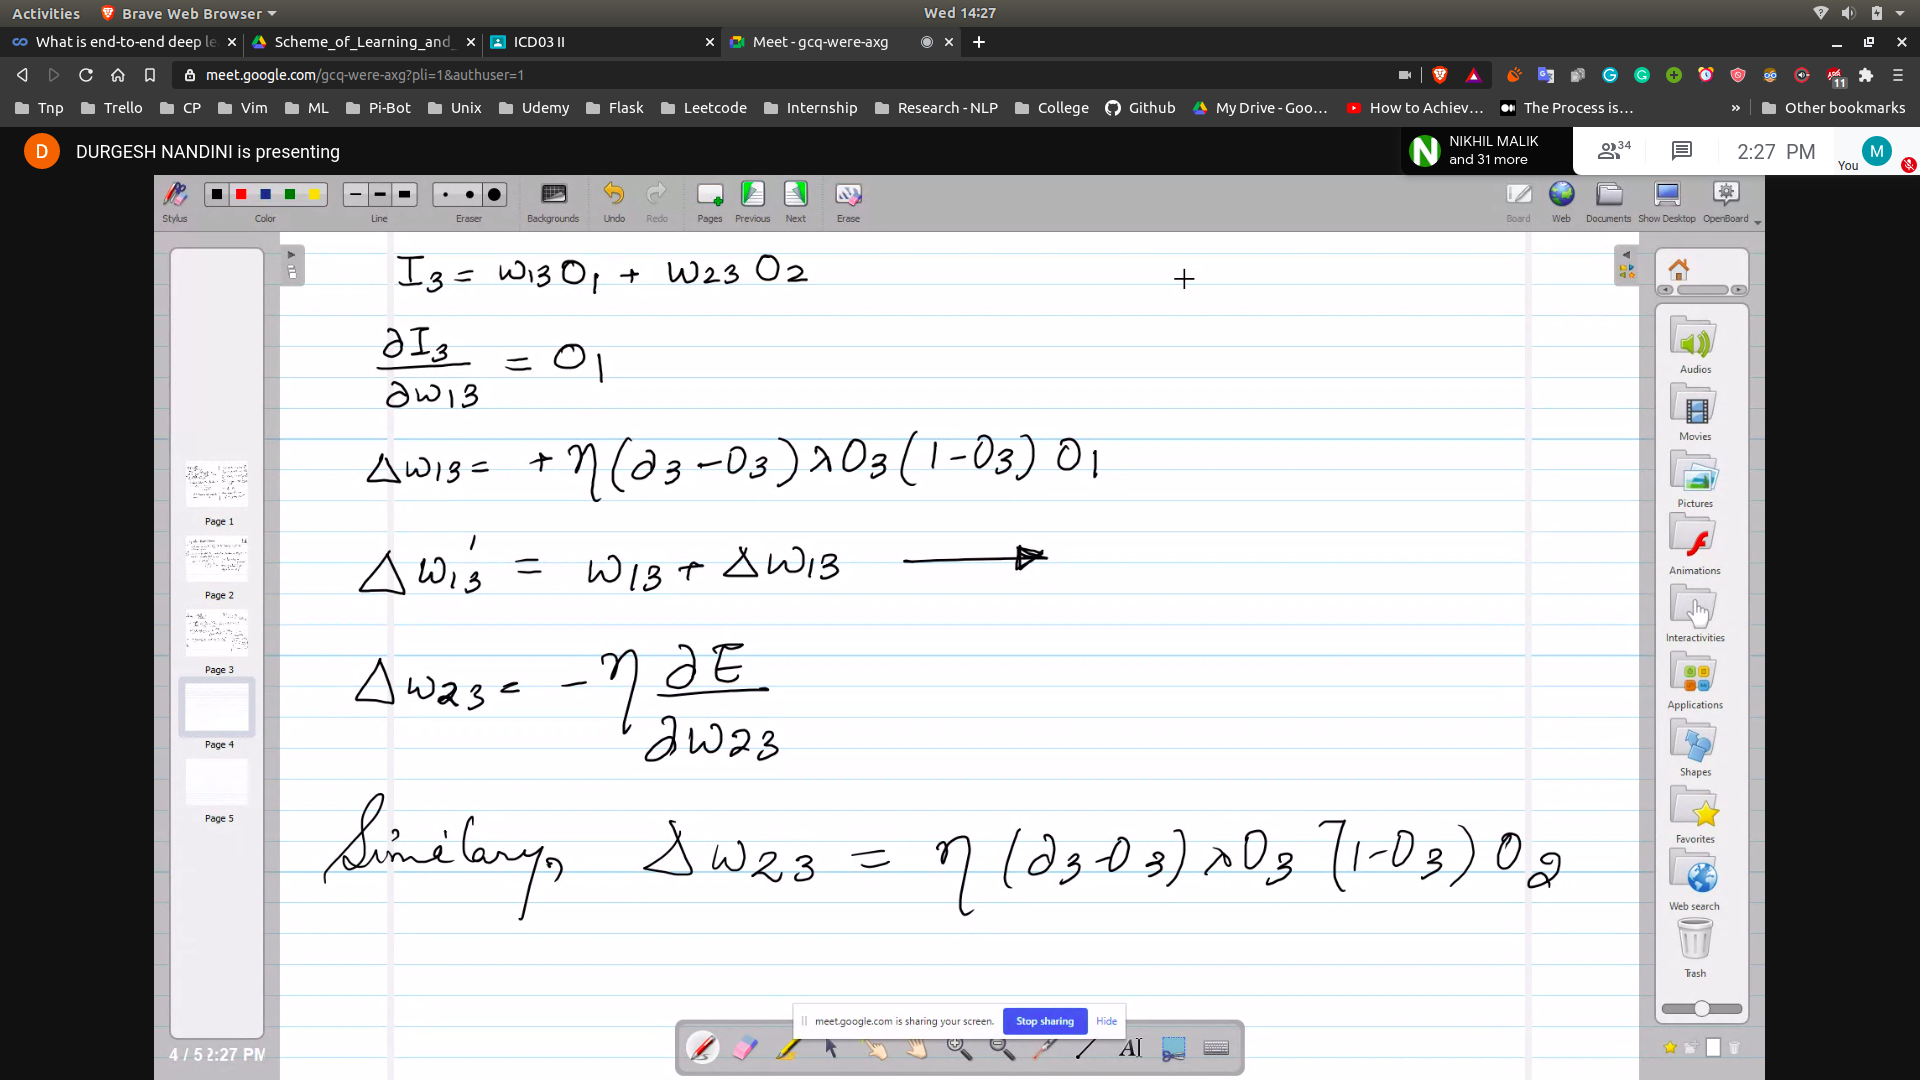 Activities Brave Web Browser Wed 14:27
What is end-to-end deep le Scheme_of_Learning_and_ ICD03 II Meet - gcq-were-axg
meet.google.com/gcq-were-axg?pli=1&authuser=1 11
Tnp Trello CP Vim ML Pi-Bot Unix Udemy Flask Leetcode Internship Research - NLP College Github My Drive - Goo... How to Achiev... The Process is... » Other bookmarks
D DURGESH NANDINI is presenting
N NIKHIL MALIK
and 31 more
34 2:27 PM You M
Stylus Color Line Eraser Backgrounds Undo Redo Pages Previous Next Erase Board Web Documents Show Desktop OpenBoard
I3 = w13 O1 + w23 O2
∂I3
∂w13 = O1
Δw13 = + η(∂3 - O3) λO3 (1 - O3) O1
Δw13' = w13 + Δw13
Δw23 = - η ∂E
∂w23
Similary, Δw23 = η (∂3 - O3) λO3 (1 - O3) O2
Page 1
Page 2
Page 3
Page 4
Page 5
4 / 5 2:27 PM
Audios
Movies
Pictures
Animations
Interactivities
Applications
Shapes
Favorites
Web search
Trash
meet.google.com is sharing your screen. Stop sharing Hide